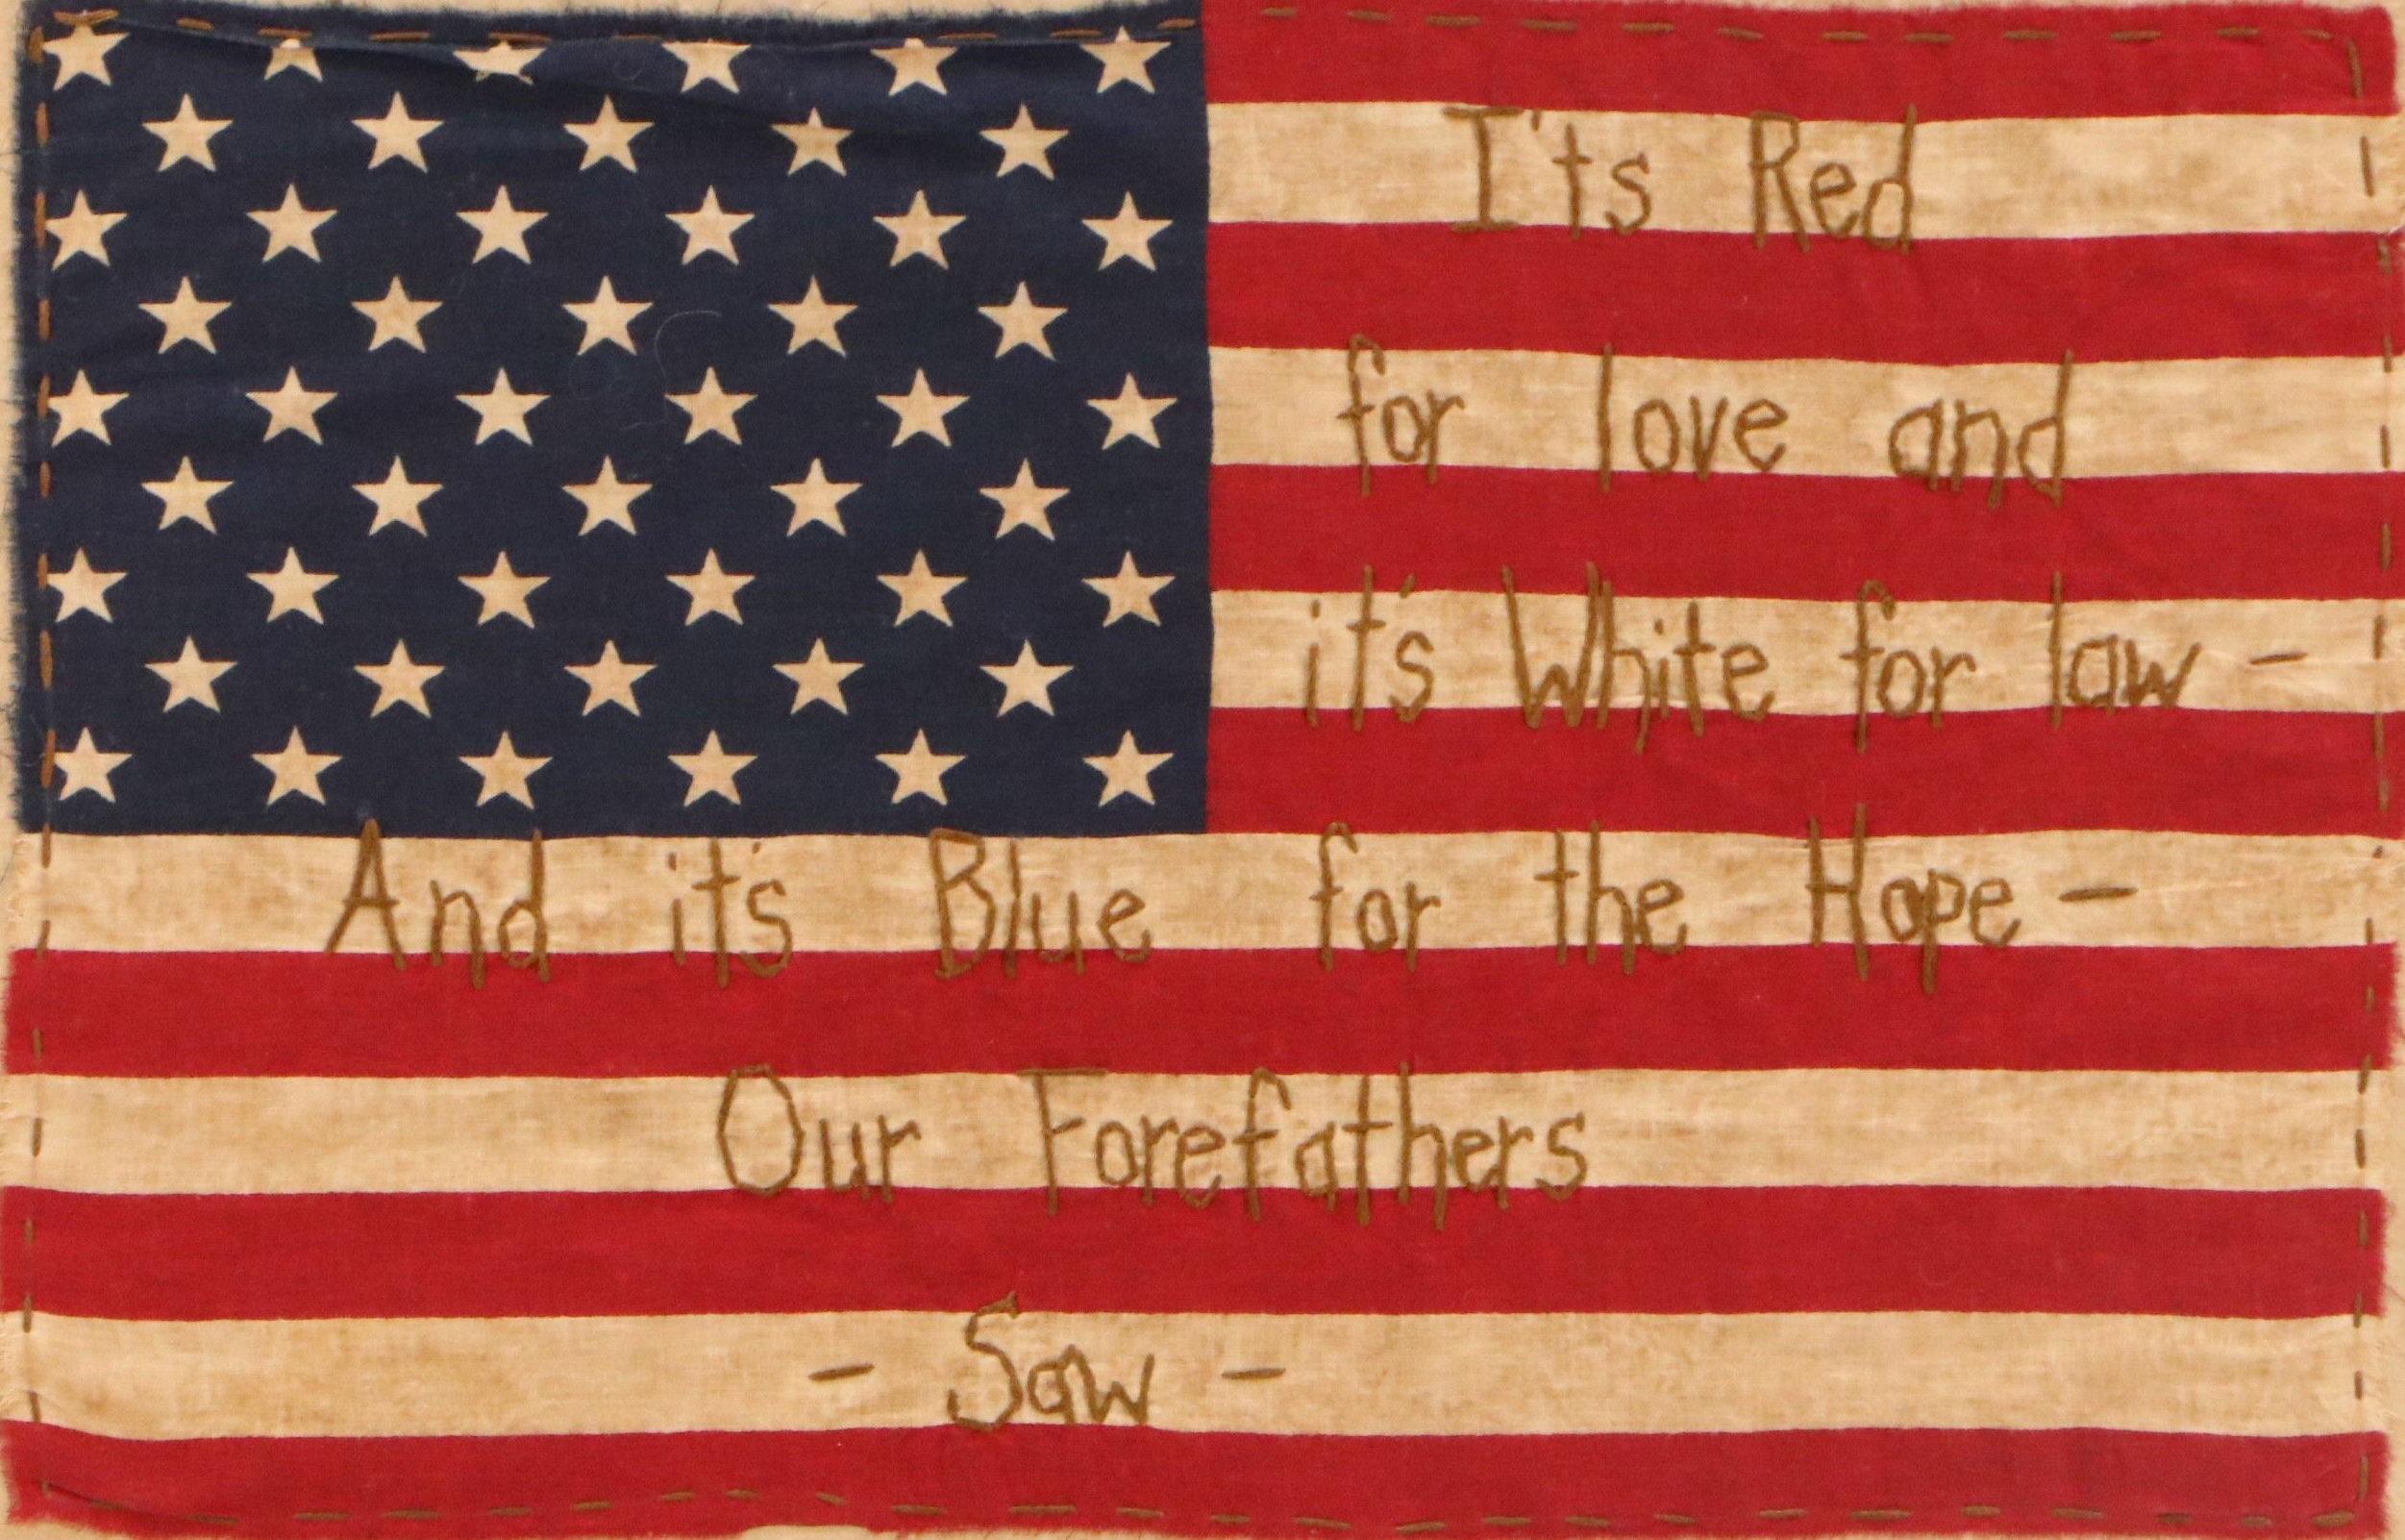 I'ts Red
for love and
it's White for law -
And it's Blue for the Hope -
Our Forefathers
- Saw -